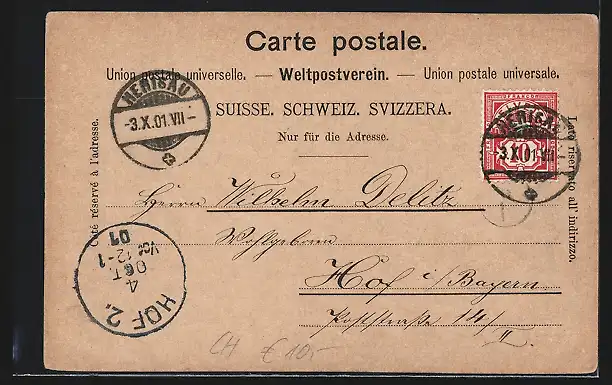 Carte postale.
Union postale universelle. — Weltpostverein. — Union postale universale.
SUISSE. SCHWEIZ. SVIZZERA.
Nur für die Adresse.
Côté réservé à l'adresse.
Lato riservato all'indirizzo.
HERISAU
-3.X.01.VII-
FRANCO
10
HERISAU
-3.X.01.VII-
Herrn Wilhelm Delitz
Wohlgeboren
Hof i/Bayern
Poststraße 14/
II.
HOF 2.
4
OCT.
Vor 12-1
01
CH € 10,-